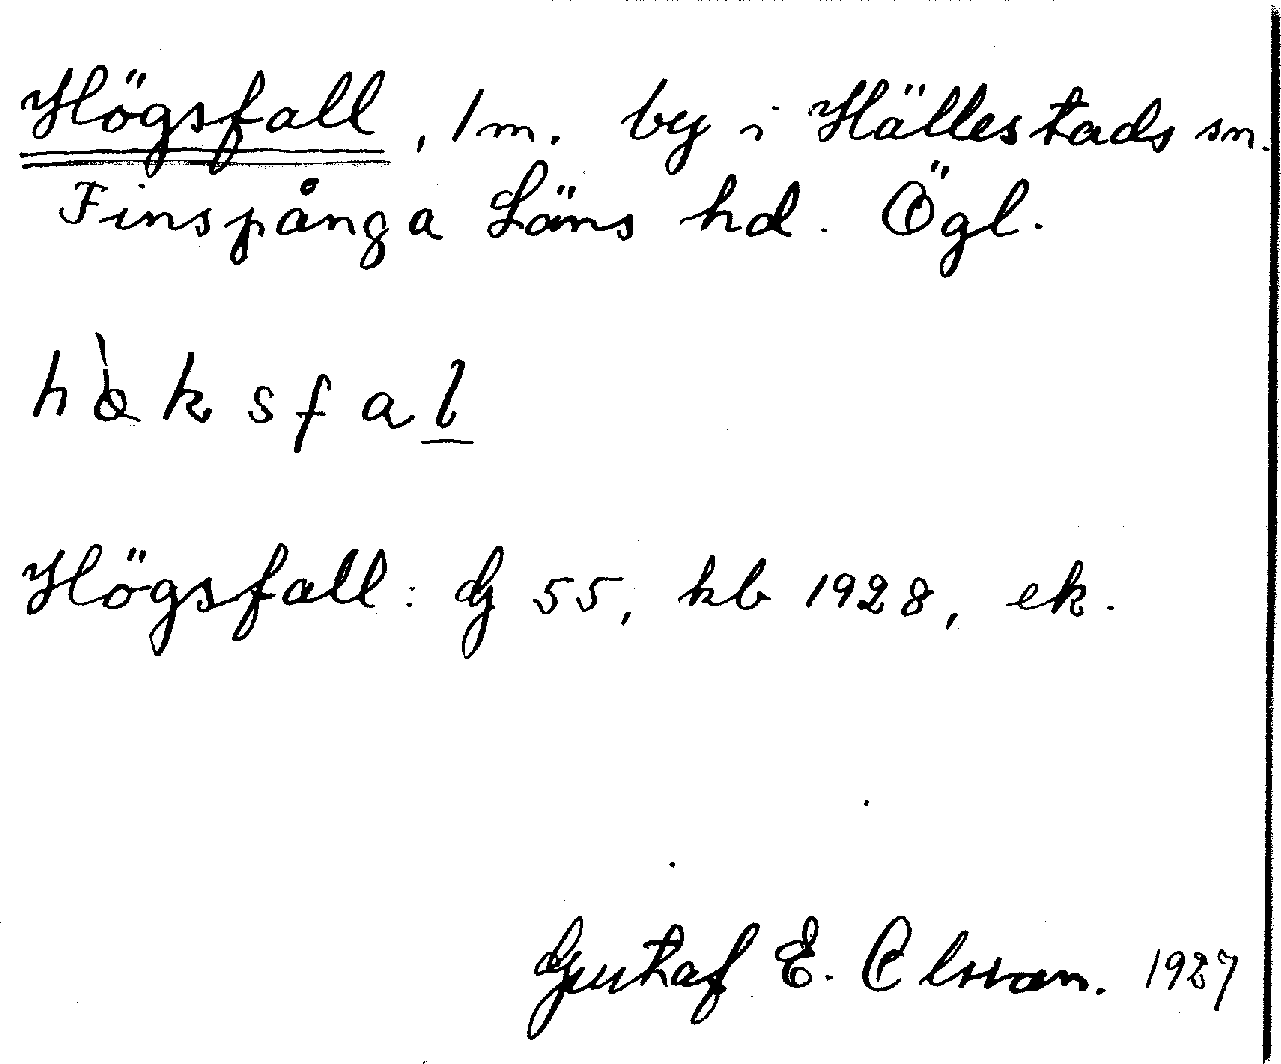 Högsfall, 1 m. by i Hällestads sn.
Finspånga Läns hd. Ögl.
Högsfall: G 55, kb 1928, ek.
Gustaf E. Olsson. 1927